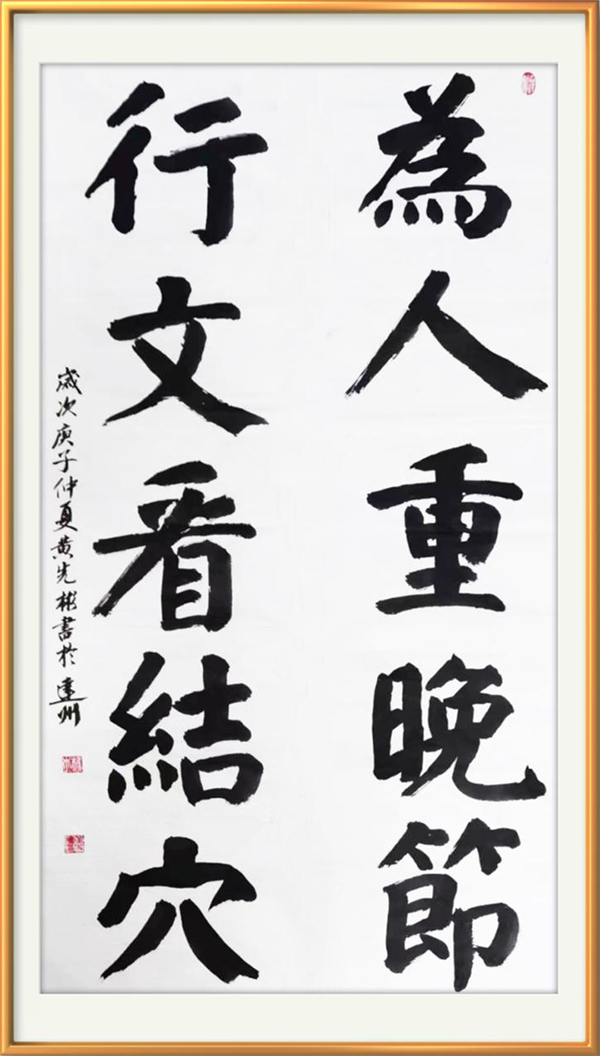 為人重晚節
行文看結穴
歲次庚子仲夏黄先彬書於達州